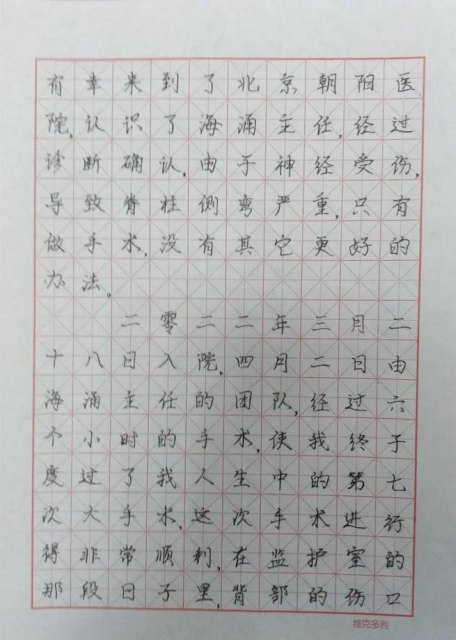 有幸来到了北京朝阳医
院,认识了海涌主任,经过
诊断确认,由于神经受伤,
导致脊柱侧弯严重,只有
做手术,没有其它更好的
办法。
二零二二年三月二
十八日入院,四月二日由
海涌主任的团队,经过六
个小时的手术,使我终于
度过了我人生中的第七
次大手术,这次手术进行
得非常顺利,在监护室的
那段日子里,背部的伤口
维克多利